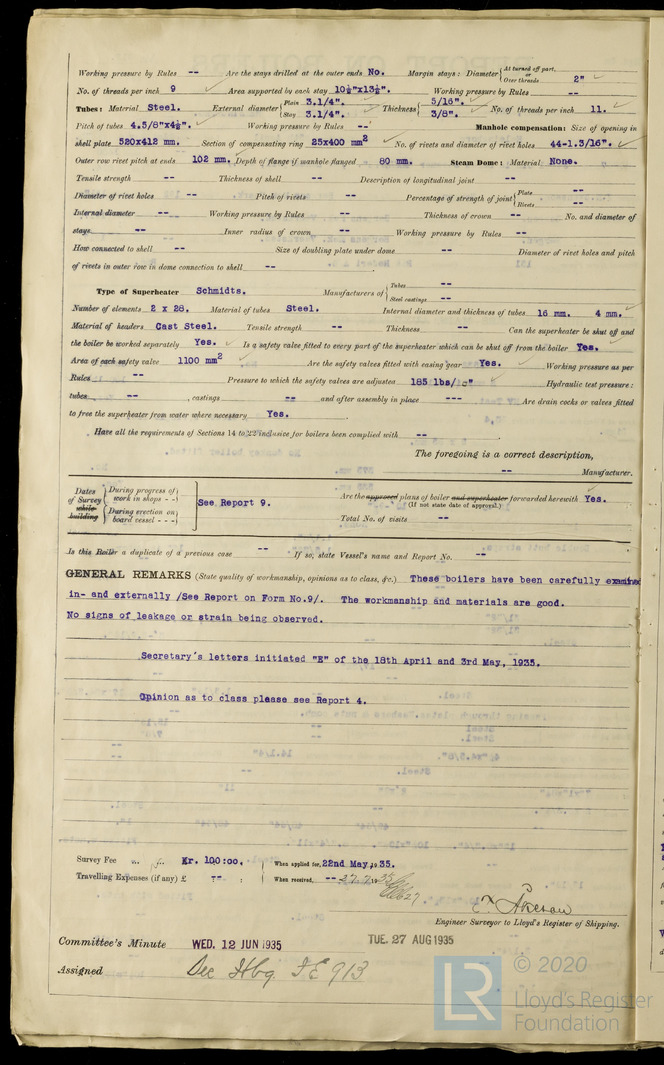 Working pressure by Rules -- Are the stays drilled at the outer ends No. Margin stays: Diameter { At turned off part, or Over threads 2"
No. of threads per inch 9 Area supported by each stay 10½"x13½". Working pressure by Rules --
Tubes: Material Steel. External diameter { Plain 3.1/4". Stay 3.1/4". Thickness { 5/16". 3/8". No. of threads per inch 11.
Pitch of tubes 4.5/8"x4½". Working pressure by Rules -- Manhole compensation: Size of opening in
shell plate 520x412 mm. Section of compensating ring 25x400 mm² No. of rivets and diameter of rivet holes 44-1.3/16".
Outer row rivet pitch at ends 102 mm. Depth of flange if manhole flanged 80 mm. Steam Dome: Material None.
Tensile strength -- Thickness of shell -- Description of longitudinal joint --
Diameter of rivet holes -- Pitch of rivets -- Percentage of strength of joint { Plate -- Rivets --
Internal diameter -- Working pressure by Rules -- Thickness of crown -- No. and diameter of
stays -- Inner radius of crown -- Working pressure by Rules --
How connected to shell -- Size of doubling plate under dome -- Diameter of rivet holes and pitch
of rivets in outer row in dome connection to shell --
Type of Superheater Schmidts. Manufacturers of { Tubes -- Steel castings --
Number of elements 2 x 28. Material of tubes Steel. Internal diameter and thickness of tubes 16 mm. 4 mm.
Material of headers Cast Steel. Tensile strength -- Thickness -- Can the superheater be shut off and
the boiler be worked separately Yes. Is a safety valve fitted to every part of the superheater which can be shut off from the boiler Yes.
Area of each safety valve 1100 mm² Are the safety valves fitted with easing gear Yes. Working pressure as per
Rules -- Pressure to which the safety valves are adjusted 185 lbs/□" Hydraulic test pressure:
tubes -- , castings -- and after assembly in place --- Are drain cocks or valves fitted
to free the superheater from water where necessary Yes.
Have all the requirements of Sections 14 to 22 inclusive for boilers been complied with --
The foregoing is a correct description,
-- Manufacturer.
Dates of Survey while building { During progress of work in shops - - During erection on board vessel - - - } See Report 9. Are the approved plans of boiler and superheater forwarded herewith Yes.
(If not state date of approval.)
Total No. of visits --
Is this Boiler a duplicate of a previous case -- If so, state Vessel's name and Report No. --
GENERAL REMARKS (State quality of workmanship, opinions as to class, &c.) These boilers have been carefully examined
in- and externally /See Report on Form No.9/. The workmanship and materials are good.
No signs of leakage or strain being observed.
Secretary's letters initiated "E" of the 18th April and 3rd May, 1935.
Opinion as to class please see Report 4.
Survey Fee ... ... Kr. 100:00. When applied for, 22nd May, 1935.
Travelling Expenses (if any) £ -- : : When received, --
Engineer Surveyor to Lloyd's Register of Shipping.
Committee's Minute WED. 12 JUN 1935 TUE. 27 AUG 1935
Assigned
LR © 2020
Lloyd's Register
Foundation